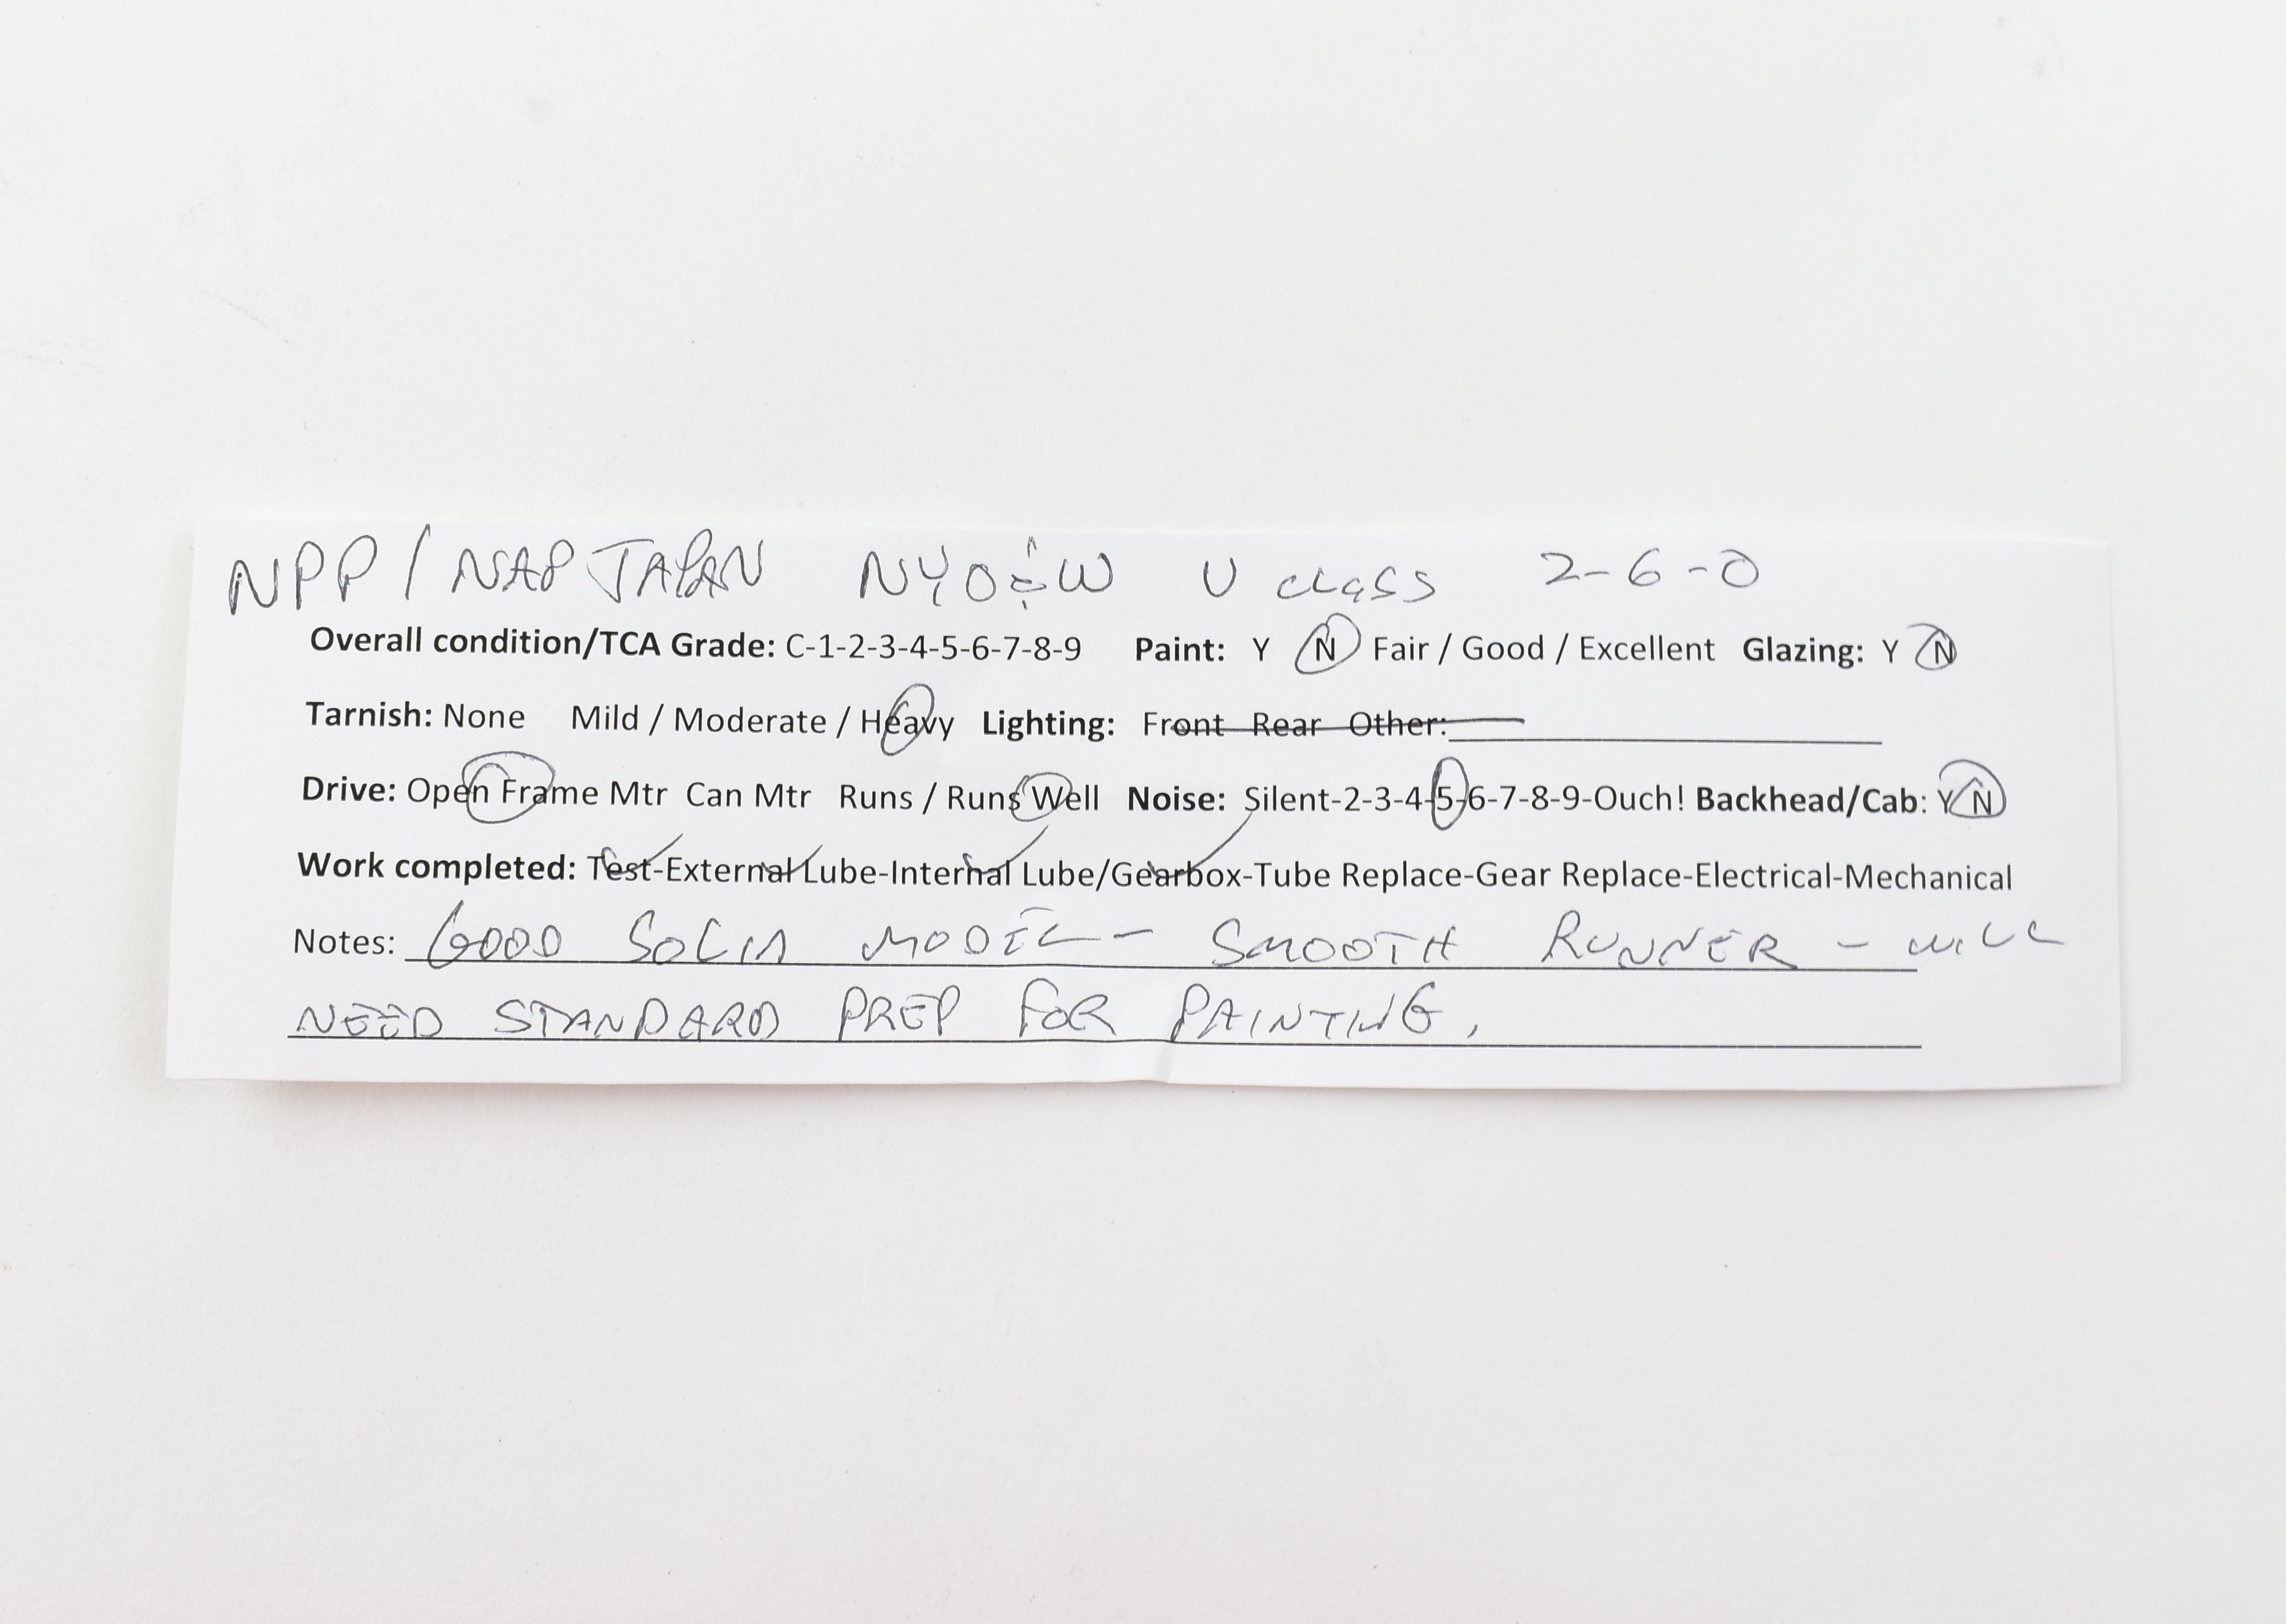 NPP / NAP JAPAN NYO&W U class 2-6-0
Overall condition/TCA Grade: C-1-2-3-4-5-6-7-8-9 Paint: Y N Fair / Good / Excellent Glazing: Y N
Tarnish: None Mild / Moderate / Heavy Lighting: Front Rear Other:
Drive: Open Frame Mtr Can Mtr Runs / Runs Well Noise: Silent-2-3-4-5-6-7-8-9-Ouch! Backhead/Cab: Y N
Work completed: Test-External Lube-Internal Lube/Gearbox-Tube Replace-Gear Replace-Electrical-Mechanical
Notes: GOOD SOLID MODEL - SMOOTH RUNNER - WILL
NEED STANDARD PREP FOR PAINTING.